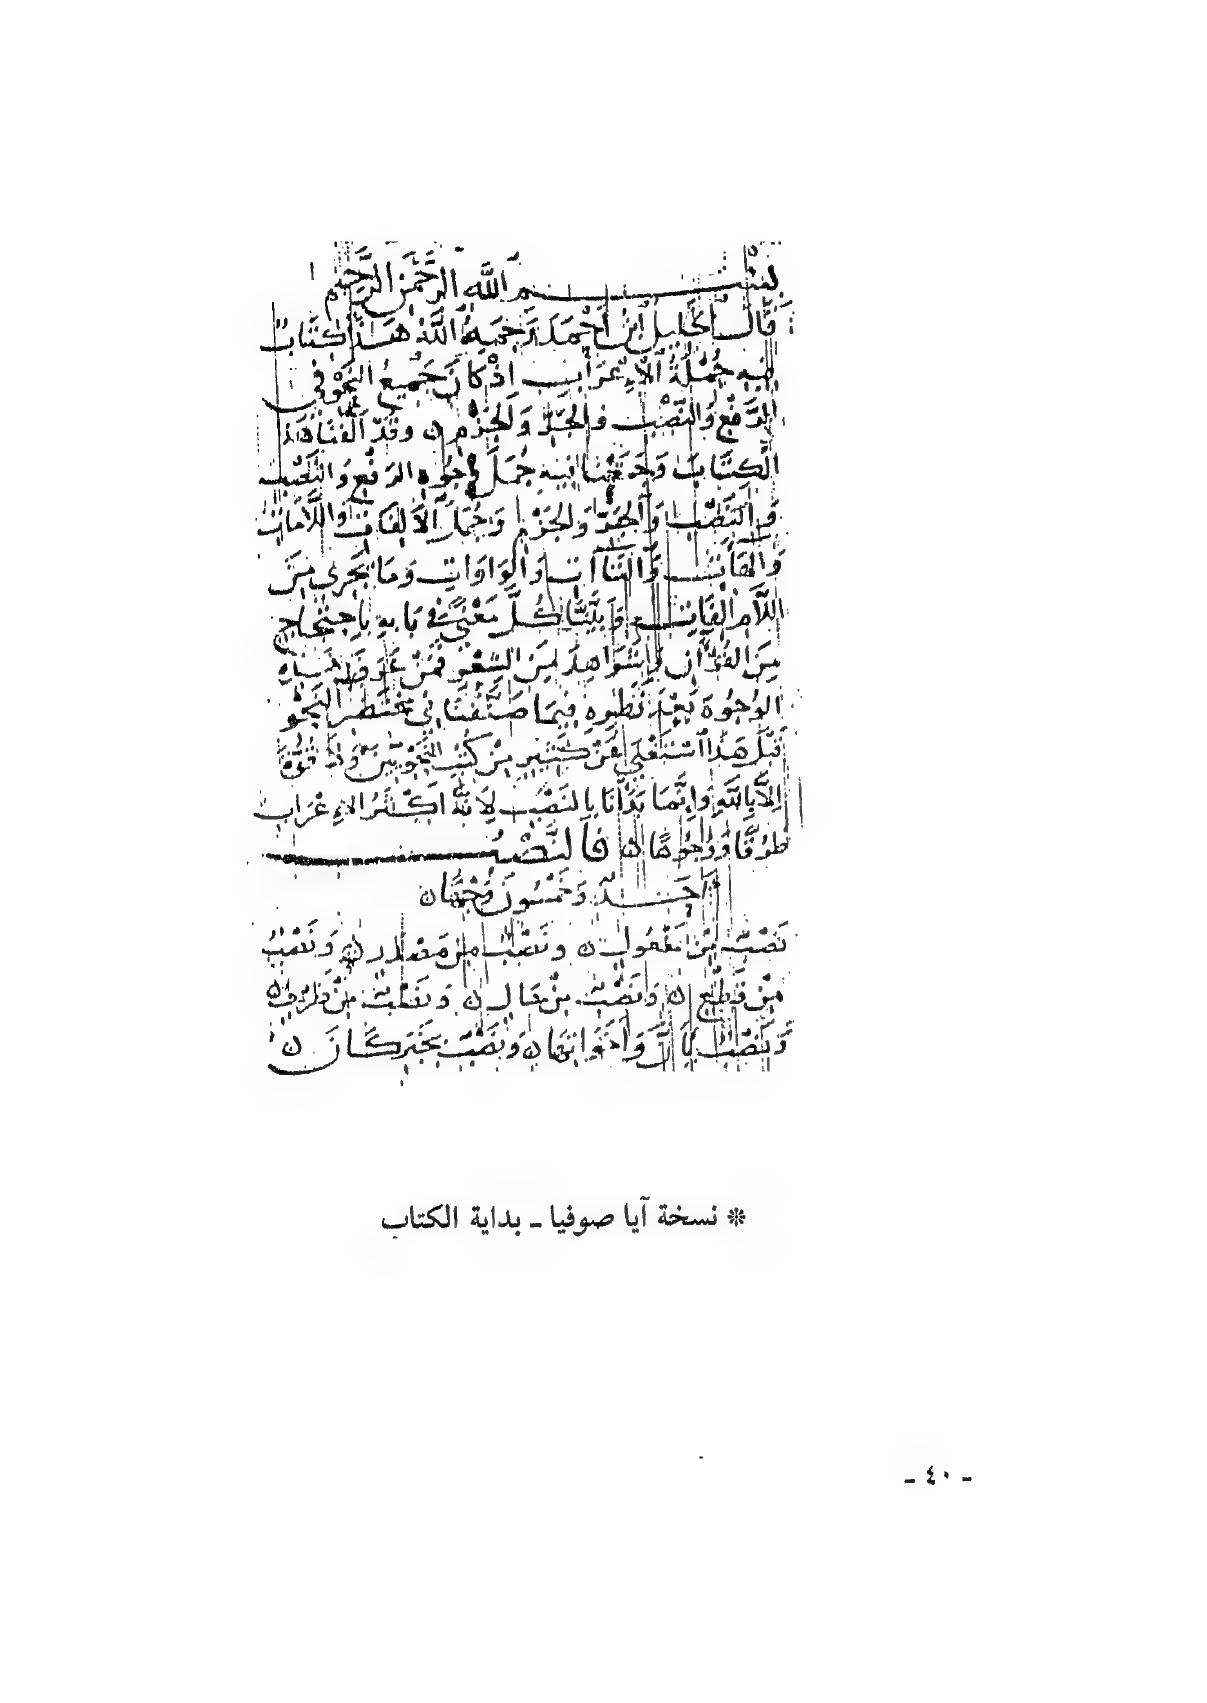 بسم الله الرحمن الرحيم
قَالَ الخَليل ابن اَحْمَد رَحمَهُ اللَّهُ هَذَا كتَابٌ
فيه جُمْلَةُ الْاِعرَاب اِذْ كَانَ جَميعُ النَّحْوِ في
الرَّفْعِ وَالنَّصْبِ وَالجَرِّ وَالجَزْمِ ۞ وَقَدْ اَلَّفْنَا هَذَا
الْكِتَابَ وَجَمَعْنَا فِيهِ جُمَلَ وُجُوه الرَّفْعِ وَالنَّصْبِ
وَالنَّصْبِ وَالجَرِّ وَالجَزْمِ وَجُمَلَ الْاَلِفَاتِ وَاللَّامَاتِ
وَالهَاآتِ وَالتَّاآتِ وَالْوَاوَاتِ وَمَا يَجْرِي مِنَ
اللَّام الْفَاتِ وَبَيَّنَّا كُلَّ مَعْنًى في بَابِهِ بِاحتِجَاجٍ
مِنَ القُرْآنِ وَشَوَاهِدَ مِنَ الشِّعْرِ فَمَنْ عَرَفَ هَذِهِ
الوُجُوهَ بَعْدَ نَظَرِهِ فِيمَا صَنَّفْنَا فِي مُخْتَصَرِ النَّحْوِ
قَبْلَ هَذَا اسْتَغْنَى عَنْ كَثِيرٍ مِنْ كُتُبِ النَّحْوِيِّينَ وَلَا قُوَّةَ
اِلَّا بِاللَّهِ وَاِنَّمَا بَدَأْنَا بِالنَّصْبِ لِاَنَّهُ اَكْثَرُ الاِعْرَابِ
طُرُقًا وَوُجُوهًا ۞ فَالنَّصْبُ
اَحَدٌ وَخَمْسُونَ وَجْهًا ۞
نَصْبٌ مِنْ مَفْعُولٍ ۞ وَنَصْبٌ مِنْ مَصْدَرٍ ۞ وَنَصْبٌ
مِنْ قَطْعٍ ۞ وَنَصْبٌ مِنْ حَالٍ ۞ وَنَصْبٌ مِنْ ظَرْفٍ ۞
وَنَصْبٌ بِاَنَّ وَاَخَوَاتِهَا ۞ وَنَصْبٌ بِخَبَرِ كَانَ ۞
* نسخة آيا صوفيا ـ بداية الكتاب
- ٤٠ -